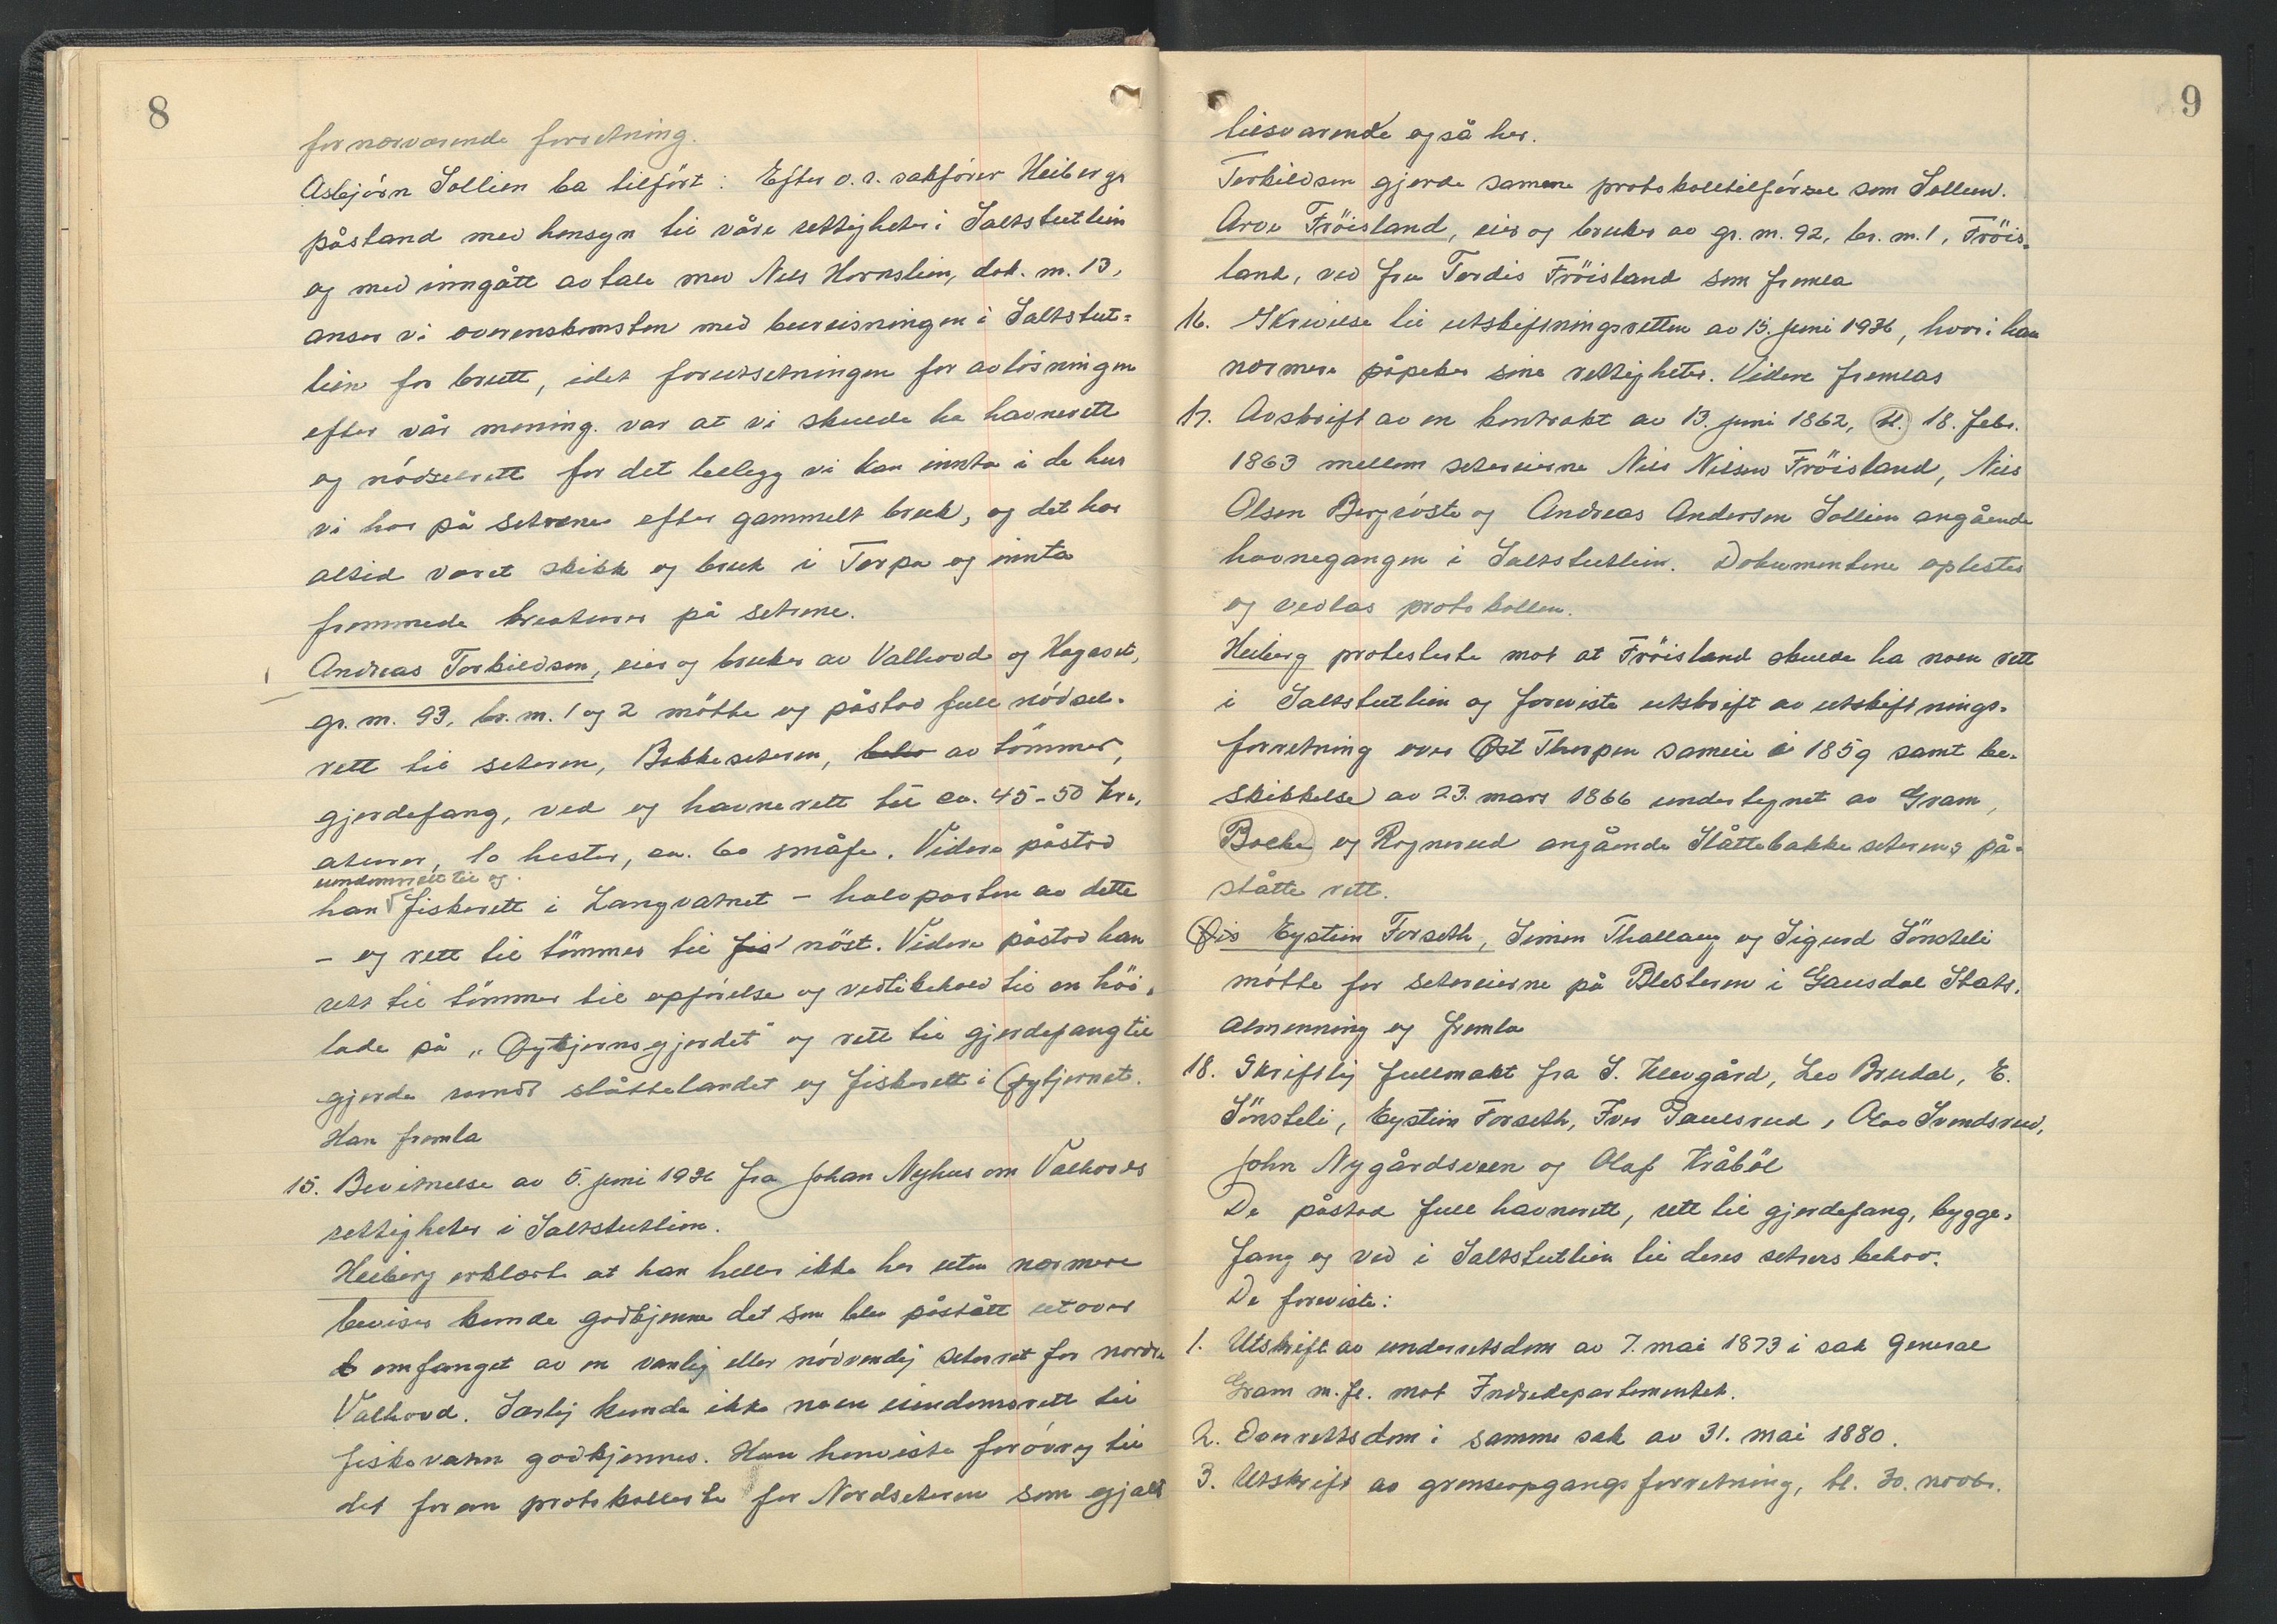 8
for nærværende forretning.
Asbjörn Sollien ba tilfört: Efter o.r. sakförer Heibergs
påstand med hensyn til våre rettigheter i Saltstutlien
og med inngått avtale med Nils Hornslien, dok. nr. 13,
anser vi overenskomsten med bureisningen i Saltstut=
lien for brutt, idet forutsetningen for avlösningen
efter vår mening var at vi skulde ha havnerett
og nödselrett for det belegg vi kan innta i de hus
vi har på setrene efter gammelt bruk, og det har
altid været skikk og bruk i Torpa og innta
fremmede kreaturer på setrene.
Andreas Torkildsen, eier og bruker av Valhovd og Hagaset,
gr. nr. 93, br. nr. 1 og 2 mötte og påstod full nödsel-
rett til seteren, Bakkeseteren, av tömmer,
gjerdefang, ved og havnerett til ca. 45-50 kre-
aturer, 10 hester, ca. 60 småfe. Videre påstod
eiendomsrett til og
han fiskerett i Langvatnet - halvparten av dette
- og rett til tömmer til fis nöst. Videre påstod han
rett til tömmer til opförelse og vedlikehold til en höi-
lade på "Øytjernsgjerdet" og rett til gjerdefang til
gjerde rundt slåttelandet og fiskerett i Øytjernet.
Han fremla
15. Bevitnelse av 5. juni 1936 fra Johan Nyhus om Valhovds
rettigheter i Saltstutlien.
Heiberg erklærte at han heller ikke her uten nærmere
beviser kunde godkjenne det som blev påstått utover
omfanget av en vanlig eller nödvendig seterrett for nordre
Valhovd. Særlig kunde ikke noen eiendomsrett til
fiskevatn godkjennes. Han henviste forövrig til
det foran protokollerte for Nordseteren som gjaldt
9
tilsvarende også her.
Torkildsen gjorde samme protokolltilförsel som Sollien.
Arve Fröisland, eier og bruker av gr. nr. 92, br. nr. 1, Fröis-
land, ved fru Tordis Fröisland som fremla
16. Skrivelse til utskiftningsretten av 15. juni 1936, hvori han
nærmere påpeker sine rettigheter. Videre fremlas
17. Avskrift av en kontrakt av 13. juni 1862, tl. 18. febr.
1863 mellem setereierne Nils Nilsen Fröisland, Nils
Olsen Bergröste og Andreas Andersen Sollien angående
havnegangen i Saltstutlien. Dokumentene oplestes
og vedlas protokollen.
Heiberg protesterte mot at Fröisland skulde ha noen rett
i Saltstutlien og foreviste utskrift av utskiftnings-
forretning over Øst Thorpen sameie i 1859 samt be-
skikkelse av 23. mars 1866 undertegnet av Gram,
og Rognerud angående Slåttebakkeseterens på-
ståtte rett.
Eystein Forseth, Simen Thallaug og Sigurd Sönsteli
mötte for setereierne på Blesteren i Gausdal Stats-
almenning og fremla
18. Skriftlig fullmakt fra S. Klevgård, Leo Brudal, E.
Sönsteli, Eystein Forseth, Iver Paulsrud, Olav Svendsrud,
John Nygårdsveen og Olaf Kråböl
De påstod full havnerett, rett til gjerdefang, bygge-
fang og ved i Saltstutlien til deres setrers behov.
De foreviste:
1. Utskrift av underrettsdom av 7. mai 1873 i sak General
Gram m. fl. mot Indredepartementet.
2. Overrettsdom i samme sak av 31. mai 1880.
3. Utskrift av grenseopgangsforretning, tl. 30. novbr.